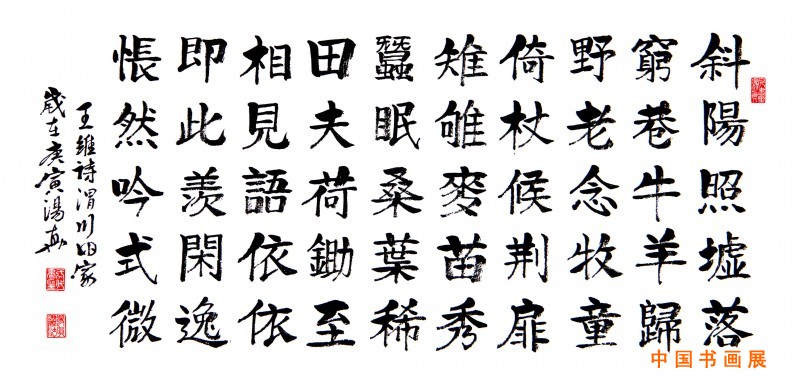 斜陽照墟落
窮巷牛羊歸
野老念牧童
倚杖候荆扉
雉雊麥苗秀
蠶眠桑葉稀
田夫荷鋤至
相見語依依
即此羨閑逸
悵然吟式微
王維詩渭川田家
歲在庚寅湯
中国书画展